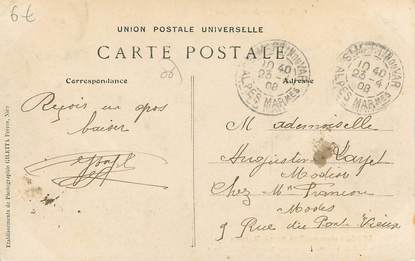 6€
UNION POSTALE UNIVERSELLE
CARTE POSTALE
Correspondance
Adresse
ST MARTIN DU VAR
10 40
23 -4
08
ALPES MARMES
ST MARTIN DU VAR
10 40
23 -4
08
ALPES MARMES
Reçois un gros
baiser
Mademoiselle
Augustine
Modes
Chez Mr Francou
Modes
9 Rue du Pont Vieux
Etablissements de Photographie GILETTA Frères, Nice